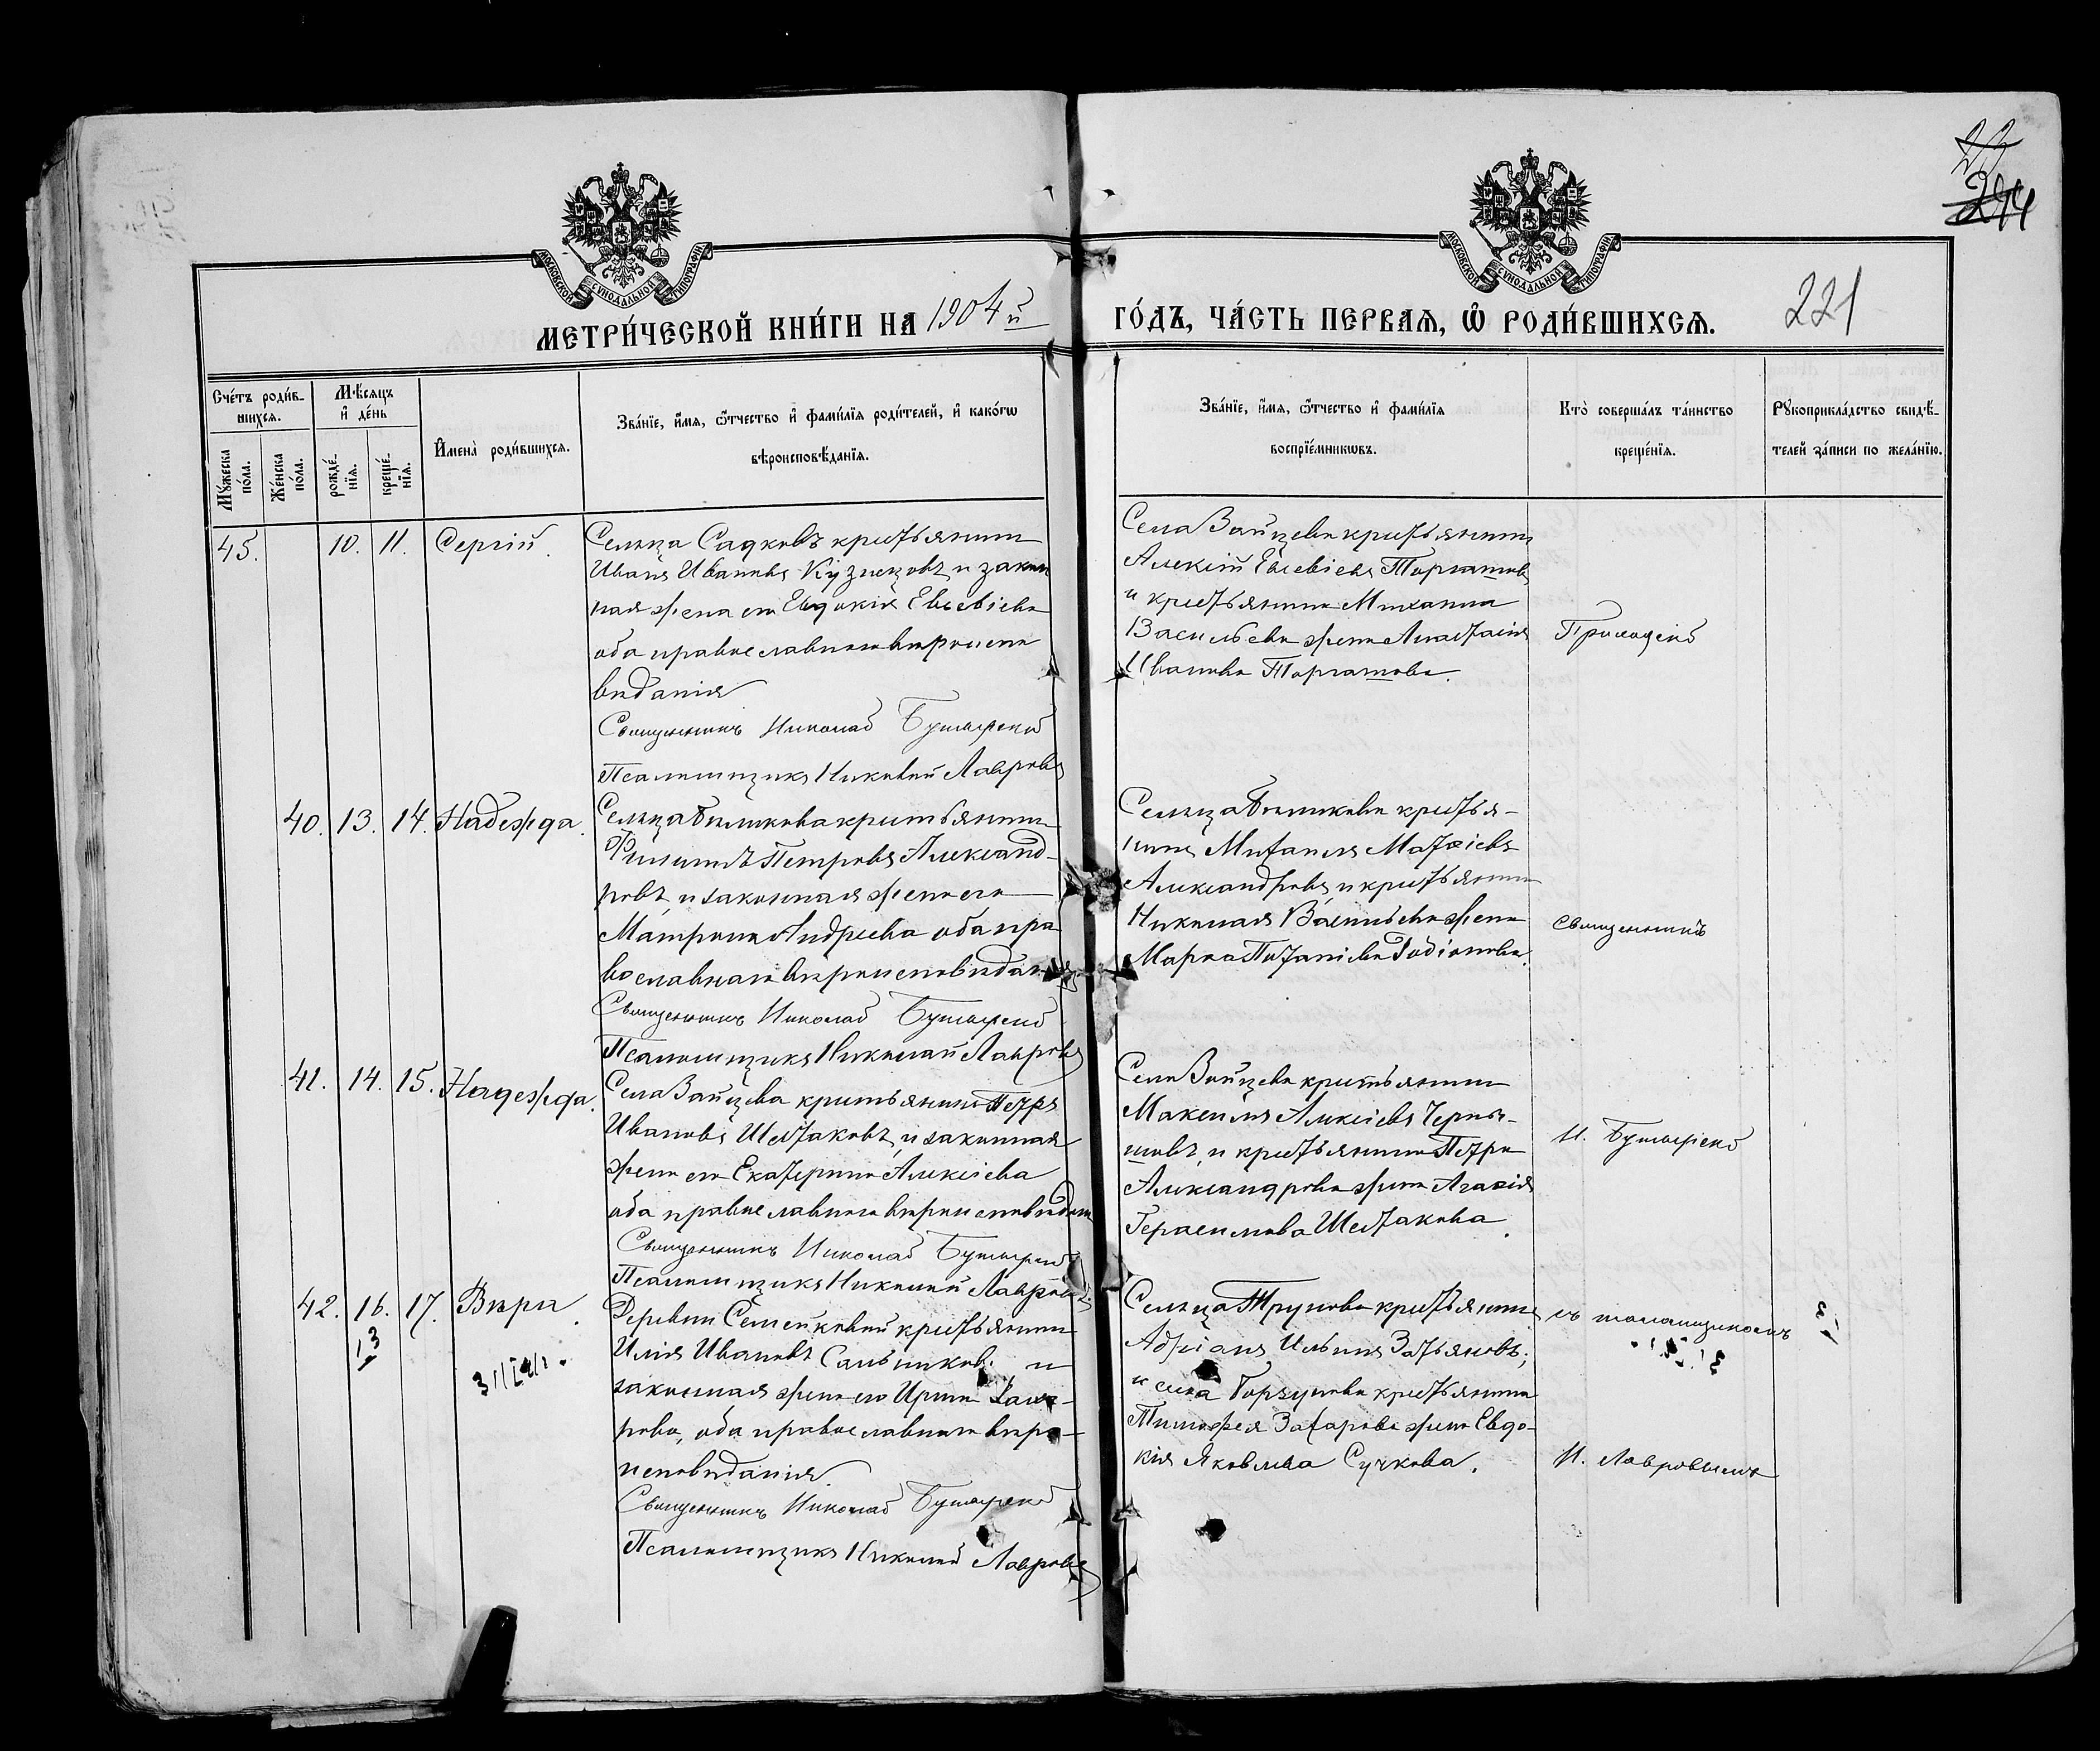 22
244
МОСКОВСКОЙ СѴНОДАЛЬНОЙ ТИПОГРАФІИ
МОСКОВСКОЙ СѴНОДАЛЬНОЙ ТИПОГРАФІИ
МЕТРИ́ЧЕСКОЙ КНИ́ГИ НА 1904й
ГО́ДЪ, ЧА́СТЬ ПЕРВАѦ, Ѽ РОДИ́ВШИХСѦ. 221
Сче́тъ роди́в-
шихсѧ.
Мꙋжеска по́ла.
Же́нска по́ла.
Мѣ́сѧцъ
и҆ де́нь
рожде́-
нїѧ.
креще́-
нїѧ.
И҆мена̀ роди́вшихсѧ.
Зва́нїе, и҆́мѧ, ѻ҆́тчество и҆ фами́лїѧ роди́телей, и҆ како́гѡ
вѣроисповѣ́данїѧ.
Зва́нїе, и҆́мѧ, ѻ҆́тчество и҆ фами́лїѧ
воспрїе́мникѡвъ.
Кто̀ соверша́лъ та́инство
креще́нїѧ.
Рꙋкоприкла́дство свидѣ́-
телей за́писи по жела́нїю.
45. 10. 11. Сергій.
Сельца Садковъ крестьянинъ
Иванъ Ивановъ Кузнецовъ, и закон
ная жена его Евдокія Евсевіева
оба православнаго вѣроиспо
вѣданія
Священникъ Николай
Псаломщикъ Николай Лавровъ
Села Зайцева крестьянинъ
Алексій Евсевіевъ Торгашовъ
и крестьянина Михаила
Васильева жена Анастасія
Иванова Торгашова.
Приходскій
40. 13. 14. Надежда.
Сельца крестьянинъ
Филиппъ Петровъ Александ-
ровъ, и законная жена его
Матрона Андреева оба пра
вославнаго вѣроисповѣданія
Священникъ Николай
Псаломщикъ Николай Лавровъ
Сельца крестья-
нинъ Михаилъ Матѳіевъ
Александровъ, и крестьянина
Николая Васильева жена
Марѳа Потапіева Родіонова.
священникъ
41. 14. 15. Надежда.
Села Зайцева крестьянинъ Петръ
Ивановъ Шестаковъ, и законная
жена его Екатерина Алексіева
оба православнаго вѣроисповѣдан
Священникъ Николай
Псаломщикъ Николай Лавровъ
Села Зайцева крестьянинъ
Максимъ Алексіевъ Черны-
шовъ, и крестьянина Петра
Александрова жена Агаѳія
Герасимова Шестакова.
Н.
42. 16. 17. Вѣра.
13
Деревни Семенковой крестьянинъ
Илія Ивановъ Сальниковъ и
законная жена его Ирина Заха-
рова, оба православнаго вѣро-
исповѣданія
Священникъ Николай
Псаломщикъ Николай Лавровъ
Сельца Трунова крестьянинъ
Адріанъ Ильинъ Затьяновъ;
и села Горзунова крестьянина
Тимоѳея Захарова жена Евдо-
кія Яковлева Сучкова.
съ псаломщикомъ
Н. Лавровымъ